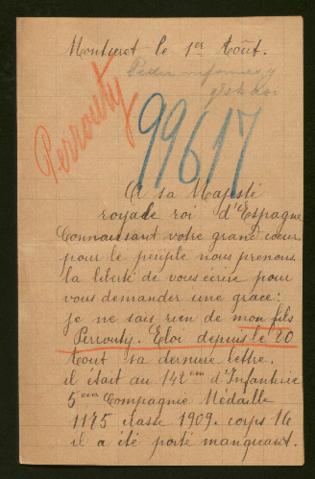 Montcret le 1er Août.
Pedir informes y
Perrouty
99617
A sa Majesté
royale roi d'Espagne
Connaissant votre grand cœur
pour le peuple nous prenons
la liberté de vous écrire pour
vous demander une grace:
je ne sais rien de mon fils
Perrouty. Eloi depuis le 20
Aout sa dernière lettre.
il était au 142em d'Infanterie
5em Compagnie Médaille
1175 classe 1909. corps 16
il a été porté manquant.